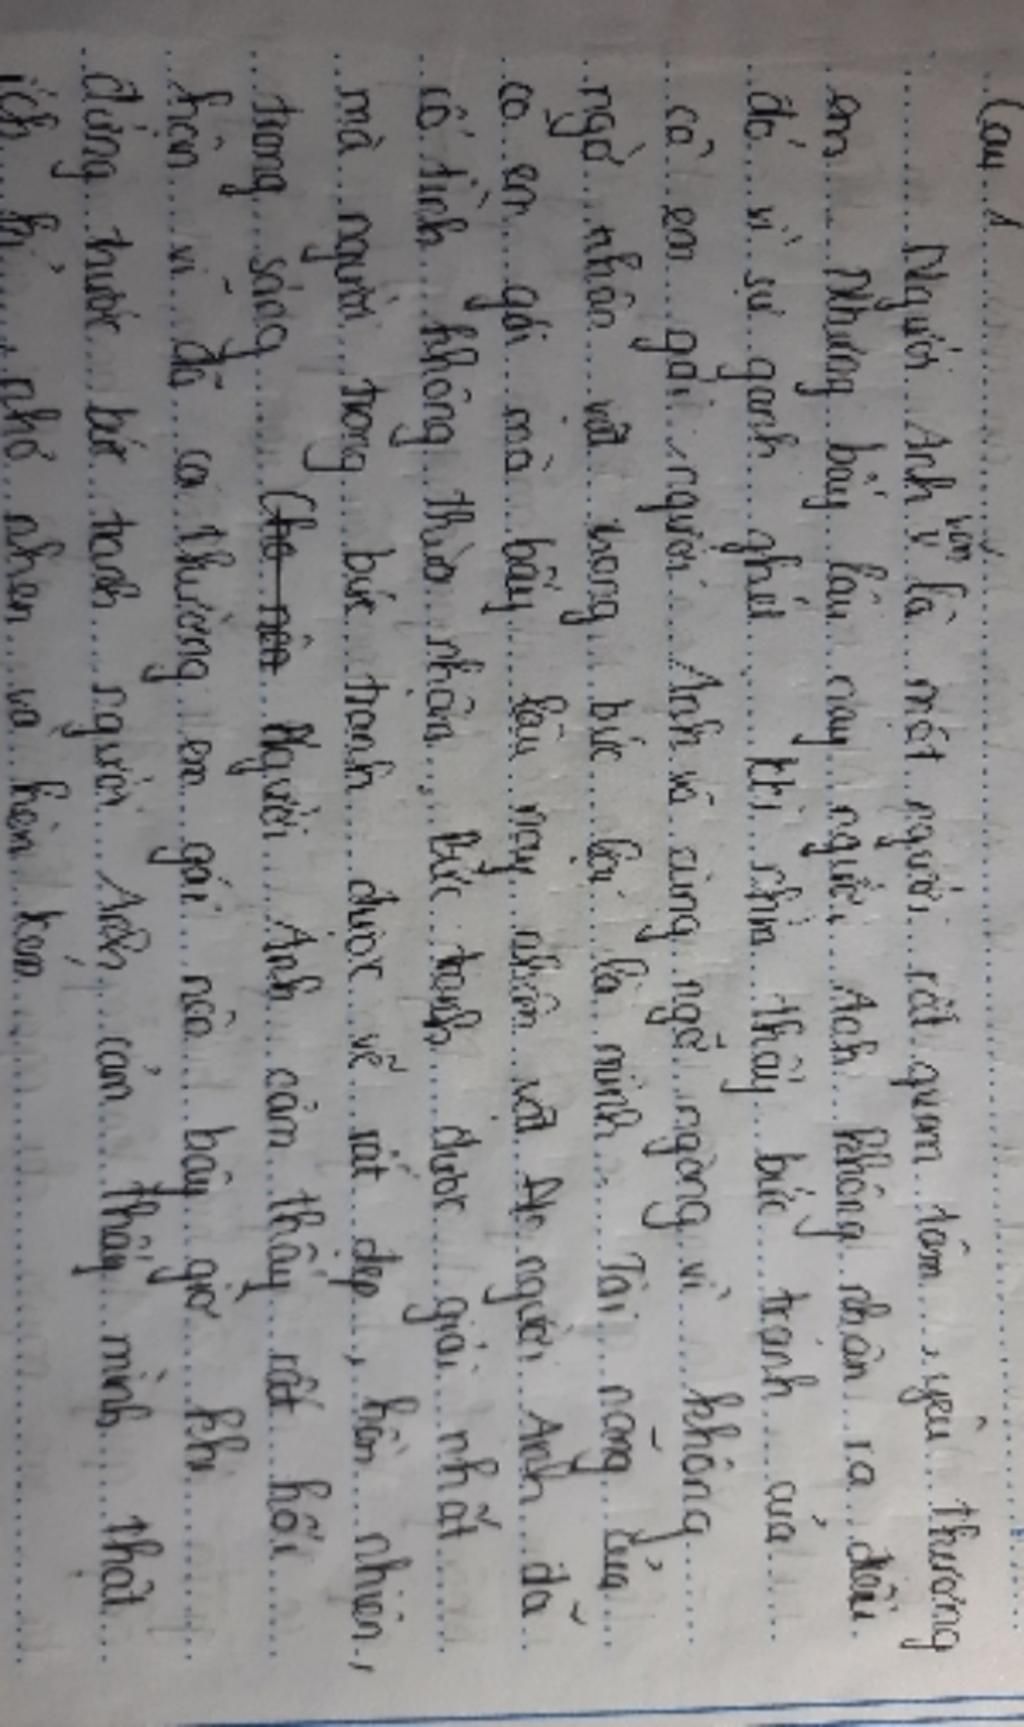 Câu 1
Người Anh vốn là một người rất quan tâm, yêu thương
em. Nhưng bấy lâu nay người Anh không nhận ra điều
đó vì sự ganh ghét khi nhìn thấy bức tranh của
cô em gái, người Anh vô cùng ngỡ ngàng vì không
ngờ nhân vật trong bức lại là mình. Tài năng của
cô em gái mà bấy lâu nay nhiên vật do người Anh đã
cố tình không thừa nhận, Bức tranh được giải nhất
mà người trong bức tranh được vẽ rất đẹp, hồn nhiên,
trong sáng. Người Anh cảm thấy rất hối
hận vì đã coi thường em gái nên bây giờ khi
đứng trước bức tranh người Anh cảm thấy mình thật
ích kỉ, nhỏ nhen và hèn kém